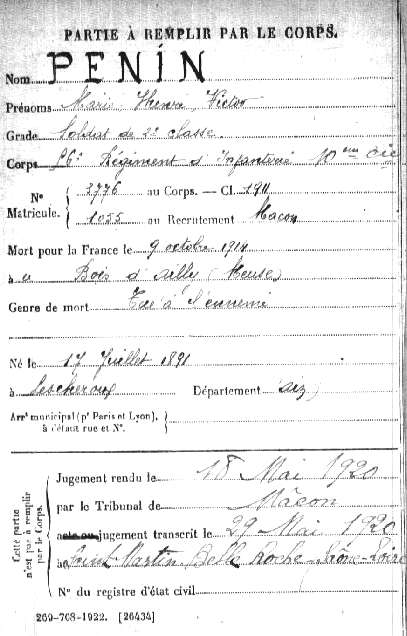 PARTIE À REMPLIR PAR LE CORPS.
Nom PENIN
Prénoms Marie Henri Victor
Grade Soldat de 2e classe
Corps 56e Régiment d'Infanterie 10ème Cie
N° Matricule. { 3776 au Corps. — Cl. 1911
1055 au Recrutement Macon
Mort pour la France le 9 octobre 1914
à Bois d'Ailly (Meuse)
Genre de mort Tué à l'ennemi
Né le 17 Juillet 1891
à Lescheroux Département Ain
Arrt municipal (pr Paris et Lyon),
à défaut rue et N°.
Cette partie n'est pas à remplir par le Corps.
Jugement rendu le 18 Mai 1920
par le Tribunal de Mâcon
acte ou jugement transcrit le 29 Mai 1920
à Saint Martin Belle Roche Saône-Loire
N° du registre d'état civil
269-708-1922. [26434]